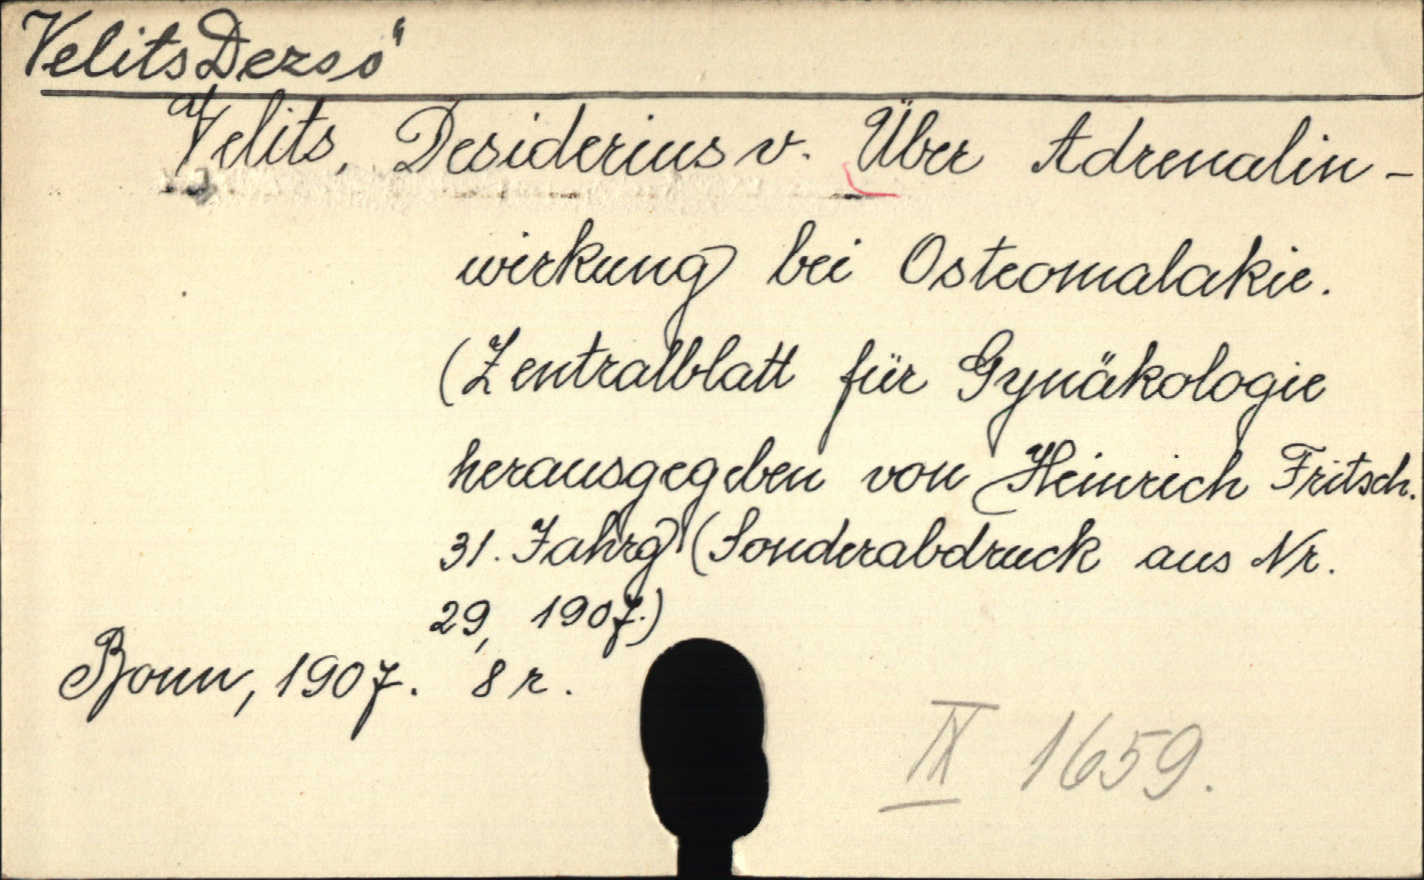 Velits Dezső
a/
Velits, Desiderius v. Über Adrenalin-
wirkung bei Osteomalakie.
(Zentralblatt für Gynäkologie
herausgegeben von Heinrich Fritsch.
31. Jahrg) (Sonderabdruck aus Nr.
29, 1907.)
Bonn, 1907. 8 r.
IX 1659.